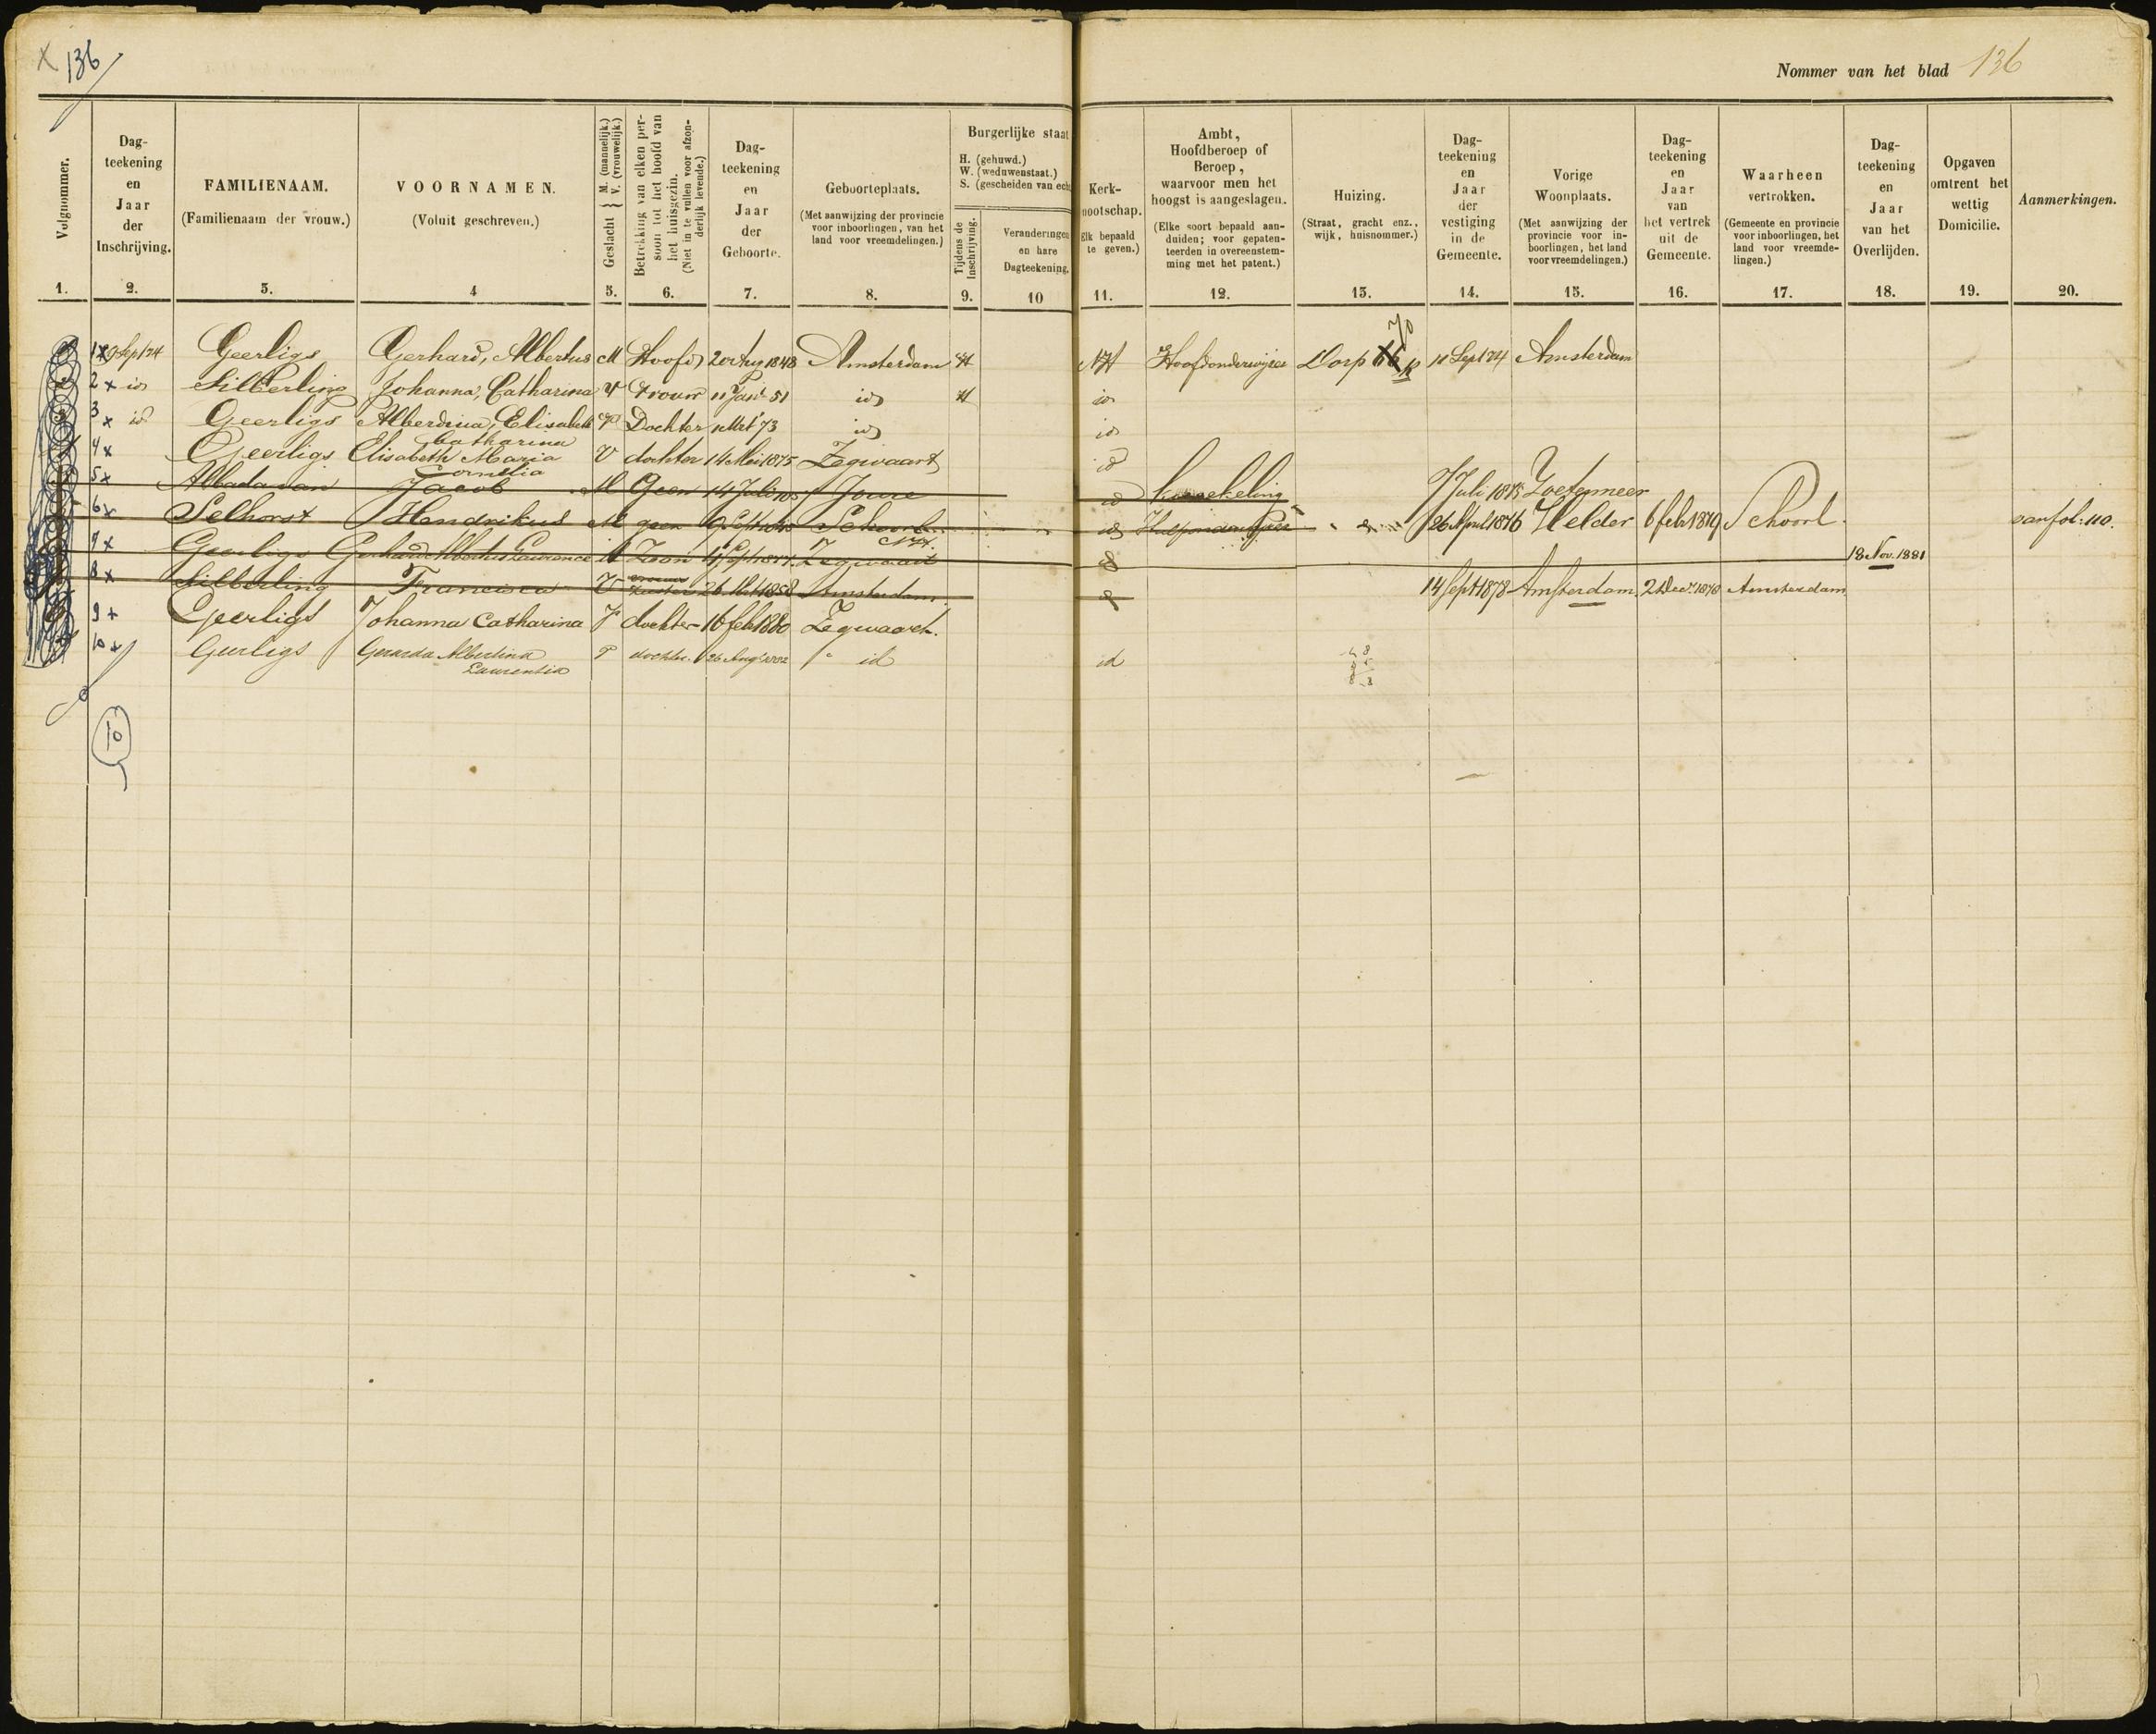 x 136
Nommer van het blad 136
Volgnommer.
Dag-
teekening
en
Jaar
der
Inschrijving.
FAMILIENAAM.
(Familienaam der vrouw.)
VOORNAMEN.
(Voluit geschreven.)
Geslacht { M. (mannelijk.) V. (vrouwelijk.)
Betrekking van elken per-
soon tot het hoofd van
het huisgezin.
(Niet in te vullen voor afzon-
derlijk levende.)
Dag-
teekening
en
Jaar
der
Geboorte.
Geboorteplaats.
(Met aanwijzing der provincie
voor inboorlingen, van het
land voor vreemdelingen.)
Burgerlijke staat
H. (gehuwd.)
W. (weduwenstaat.)
S. (gescheiden van ech
Tijdens de
Inschrijving.
Veranderingen
en hare
Dagteekening.
Kerk-
nootschap.
Elk bepaald
te geven.)
Ambt,
Hoofdberoep of
Beroep,
waarvoor men het
hoogst is aangeslagen.
(Elke soort bepaald aan-
duiden; voor gepaten-
teerden in overeenstem-
ming met het patent.)
Huizing.
(Straat, gracht enz.,
wijk, huisnommer.)
Dag-
teekening
en
Jaar
der
vestiging
in de
Gemeente.
Vorige
Woonplaats.
(Met aanwijzing der
provincie voor in-
boorlingen, het land
voor vreemdelingen.)
Dag-
teekening
en
Jaar
van
het vertrek
uit de
Gemeente.
Waarheen
vertrokken.
(Gemeente en provincie
voor inboorlingen, het
land voor vreemde-
lingen.)
Dag-
teekening
en
Jaar
van het
Overlijden.
Opgaven
omtrent het
wettig
Domicilie.
Aanmerkingen.
1. 2. 3. 4 5. 6. 7. 8. 9. 10 11. 12. 13. 14. 15. 16. 17. 18. 19. 20.
70
1 x 9 Sep 1 74 Geerligs Gerhard, Albertus M Hoofd 20 Aug 1848 Amsterdam H NH Hoofdonderwijzer Dorp 11 Sept 74 Amsterdam
2 x id Silberling Johanna, Catharina V Vrouw 11 Jan 51 id H id
3 x id Geerligs Alberdina, Elisabeth V Dochter 73 id id
Catharina
4 x Geerligs Elisabeth Maria V dochter 14 Mei 1875 Zegwaart id
Cornelia
5 x Albada van Jacob M Geen 14 Juli Joure id kweekeling 7 Juli 1875 Zoetermeer
6 x Selhorst Hendrikus M geen Schoorl id Hulponderwijzer 26 April 1876 Helder 6 feb 1879 Schoorl van fol: 110.
N.H.
7 x Geerligs Gerhard Albertus Laurence M Zoon Zegwaart 18 Nov. 1881
vrouws
8 x Silberling Francisca V Zuster 1858 Amsterdam 14 Sept 1878 Amsterdam 2 Dec. 1878 Amsterdam
9 x Geerligs Johanna Catharina V dochter 16 feb 1880 Zegwaart.
10 x Geerligs Gerarda Albertina V dochter 26 Aug 1882 id id
Laurentia
10